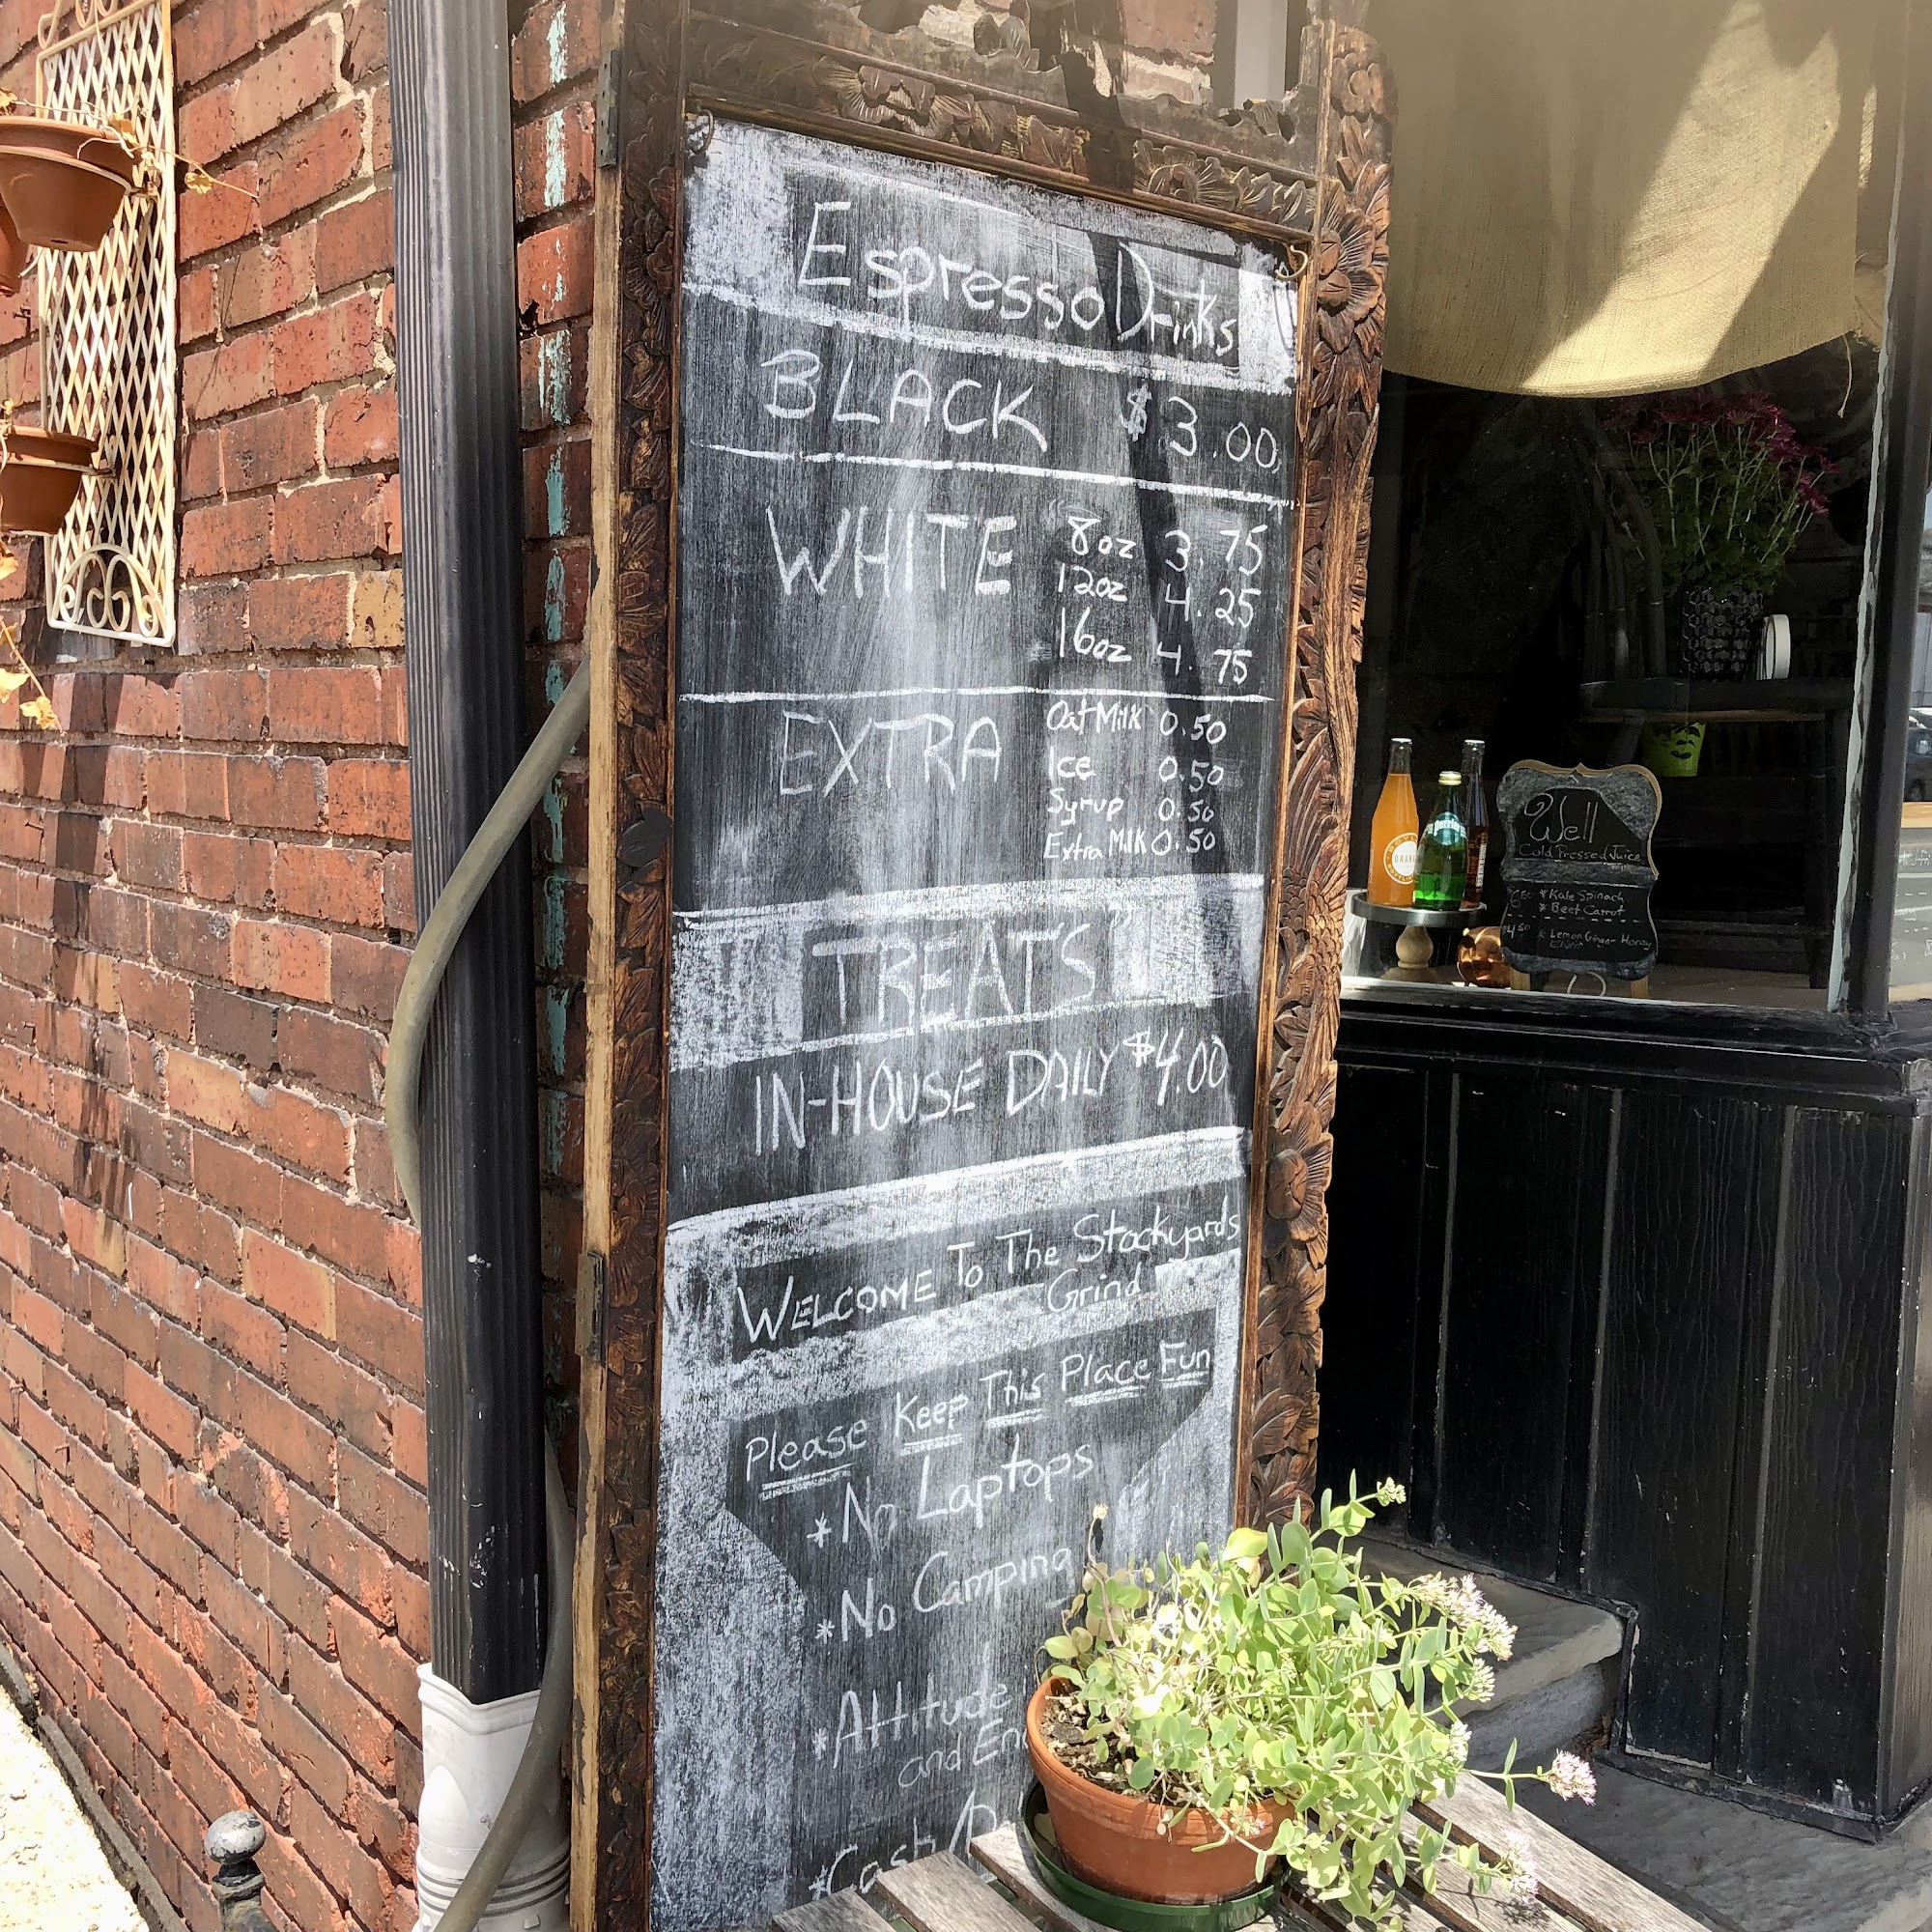 Espresso Drinks
BLACK $3.00
WHITE 8oz 3.75
12oz 4.25
16oz 4.75
EXTRA Oat Milk 0.50
Ice 0.50
Syrup 0.50
Extra Milk 0.50
TREATS
IN-HOUSE DAILY $4.00
WELCOME To The Stockyards
Grind
Please Keep This Place Fun
*No Laptops
*No Camping
*Attitude
and
*Cash
ORANGE
perrier
Well
Cold Pressed Juice
* Kale Spinach
* Beet Carrot
* Lemon Ginger Honey